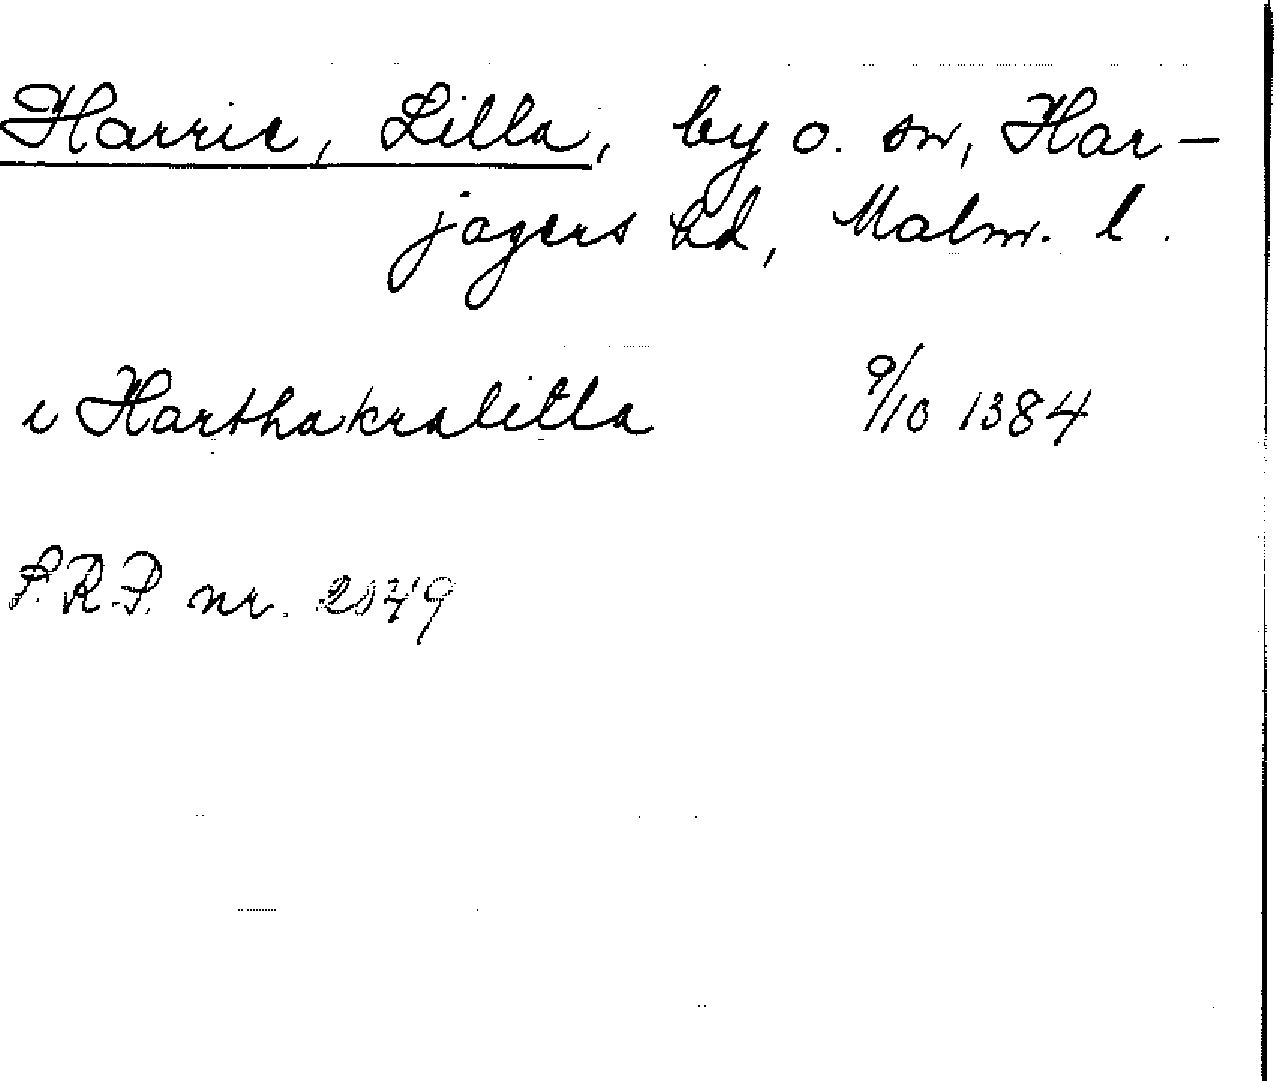 Harrie, Lilla, by o. sn, Har-
jagers hd, Malm. l.
i Harthakralitla 9/10 1384
P.R.P. nr.